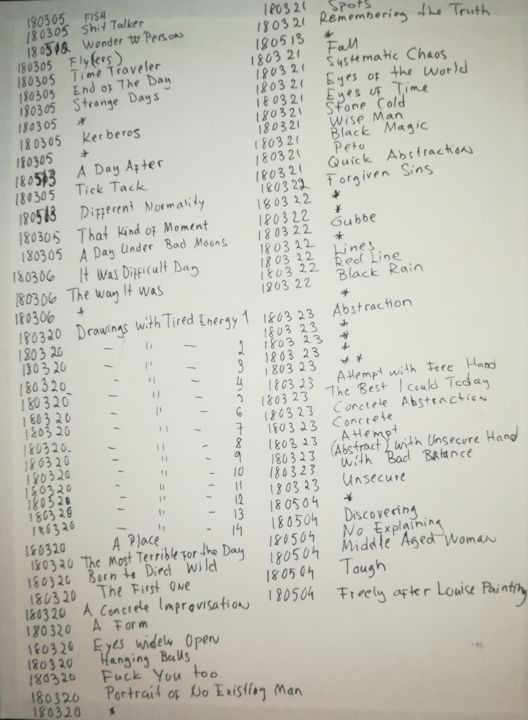 180305 FISH
180305 Shit Talker
180512 Wonder to Person
180305 Fly(ers)
180305 Time Traveler
180305 End of The Day
180305 Strange Days
180305 *
180305 Kerberos
180305 *
180513 A Day After
180305 Tick Tack
180513 Different Normality
180305 That Kind of Moment
180305 A Day Under Bad Moons
180306 It Was Difficult Day
180306 The Way It Was
180306 *
180320 Drawings with Tired Energy 1
180320 – " – 2
180320 – " – 3
180320 – " – 4
180320 – " – 5
180320 – " – 6
180320 – " – 7
180320 – " – 8
180320 – " – 9
180320 – " – 10
180320 – " – 11
180320 – " – 12
180320 – " – 13
180320 – " – 14
180320 A Place
180320 The Most Terrible for the Day
180320 Born to Died Wild
180320 The First One
180320 A Concrete Improvisation
180320 A Form
180320 Eyes widely Open
180320 Hanging Balls
180320 Fuck You too
180320 Portrait of No Existing Man
180320 *
180321 Spots
180321 Remembering the Truth
180513 *
180321 Fall
180321 Systematic Chaos
180321 Eyes of the World
180321 Eyes of Time
180321 Stone Cold
180321 Wise Man
180321 Black Magic
180321 Peto
180321 Quick Abstractions
180322 Forgiven Sins
180322 *
180322 *
180322 Gubbe
180322 *
180322 Lines
180322 Red Line
180322 Black Rain
180323 *
180323 Abstraction
180323 *
180323 *
180323 *
180323 * *
180323 Attempt with Free Hand
180323 The Best I Could Today
180323 Concrete Abstraction
180323 Concrete
180323 Attempt
180323 (Abstract) with Unsecure Hand
180323 With Bad Balance
180323 Unsecure
180504 *
180504 Discovering
180504 No Explaining
180504 Middle Aged Woman
180504 Tough
180504 Freely after Louise Painting